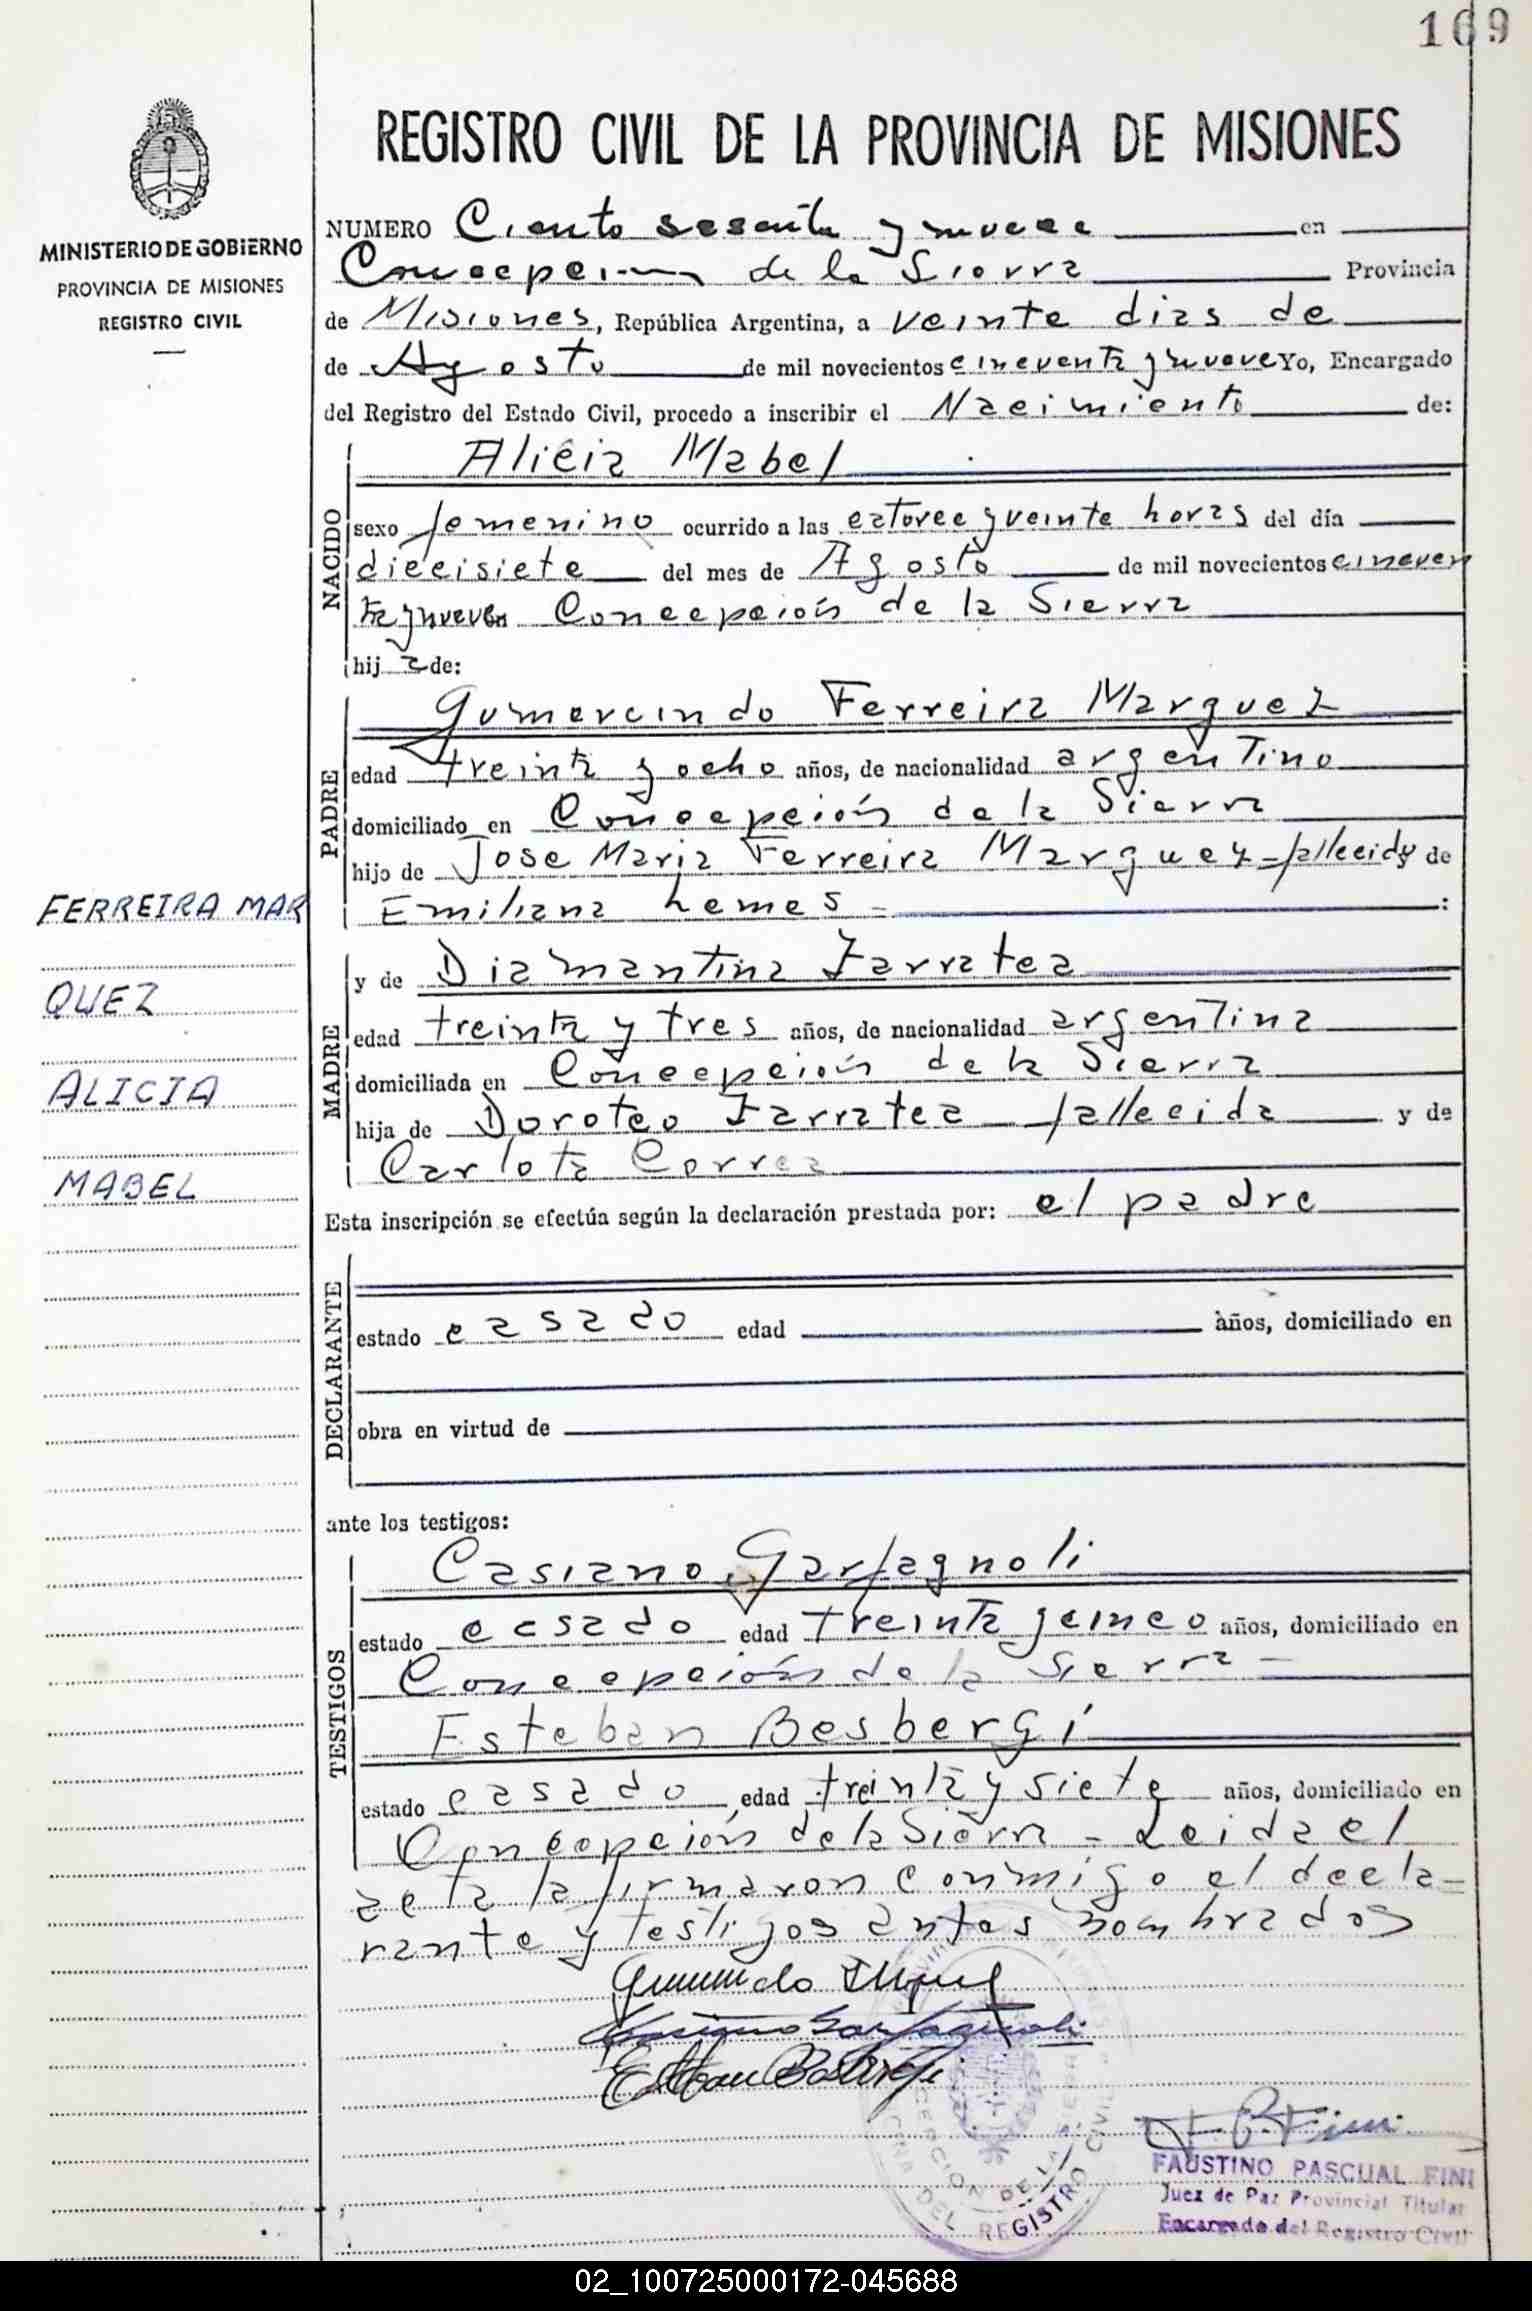 169
REGISTRO CIVIL DE LA PROVINCIA DE MISIONES
MINISTERIO DE GOBIERNO
PROVINCIA DE MISIONES
REGISTRO CIVIL
NUMERO Ciento sesenta y nueve en
Concepcion de la Sierra Provincia
de Misiones, República Argentina, a veinte dias de
de Agosto de mil novecientos cincuenta y nueve Yo, Encargado
del Registro del Estado Civil, procedo a inscribir el Nacimiento de:
NACIDO
Alicia Mabel
sexo femenino ocurrido a las catorce y veinte horas del día
diecisiete del mes de Agosto de mil novecientos cincuen
ta y nueve en Concepción de la Sierra
hij a de:
PADRE
Gumercindo Ferreira Marquez
edad treinta y ocho años, de nacionalidad argentino
domiciliado en Concepción de la Sierra
hijo de Jose Maria Ferreira Marquez - fallecido y de
Emiliana Lemes - :
FERREIRA MAR
QUEZ
ALICIA
MABEL
MADRE
y de Diamantina Zarratea
edad treinta y tres años, de nacionalidad argentina
domiciliada en Concepción de la Sierra
hija de Doroteo Zarratea fallecida y de
Carlota Correa
Esta inscripción se efectúa según la declaración prestada por: el padre
DECLARANTE
estado casado edad años, domiciliado en
obra en virtud de
ante los testigos:
TESTIGOS
Casiano Garfagnoli
estado casado edad treinta y cinco años, domiciliado en
Concepción de la Sierra -
Esteban Besbergi
estado casado edad treinta y siete años, domiciliado en
Concepción de la Sierra - Leida el
acta la firmaron conmigo el decla-
rante y testigos antes nombrados
Casiano Garfagnoli
DEL REGISTRO CIVIL
FAUSTINO PASCUAL FINI
Juez de Paz Provincial Titular
Encargado del Registro Civil
02_100725000172-045688